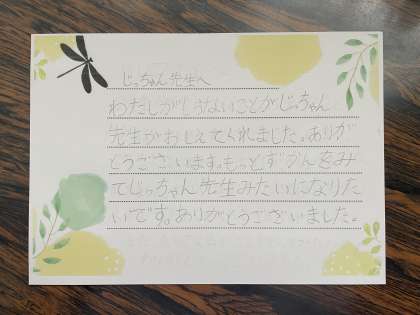 じっちゃん先生へ
わたしがしらないことがじっちゃん
先生がおしえてくれました。ありが
とうございます。もっとずかんをみ
てじっちゃん先生みたいになりた
いです。ありがとうございました。